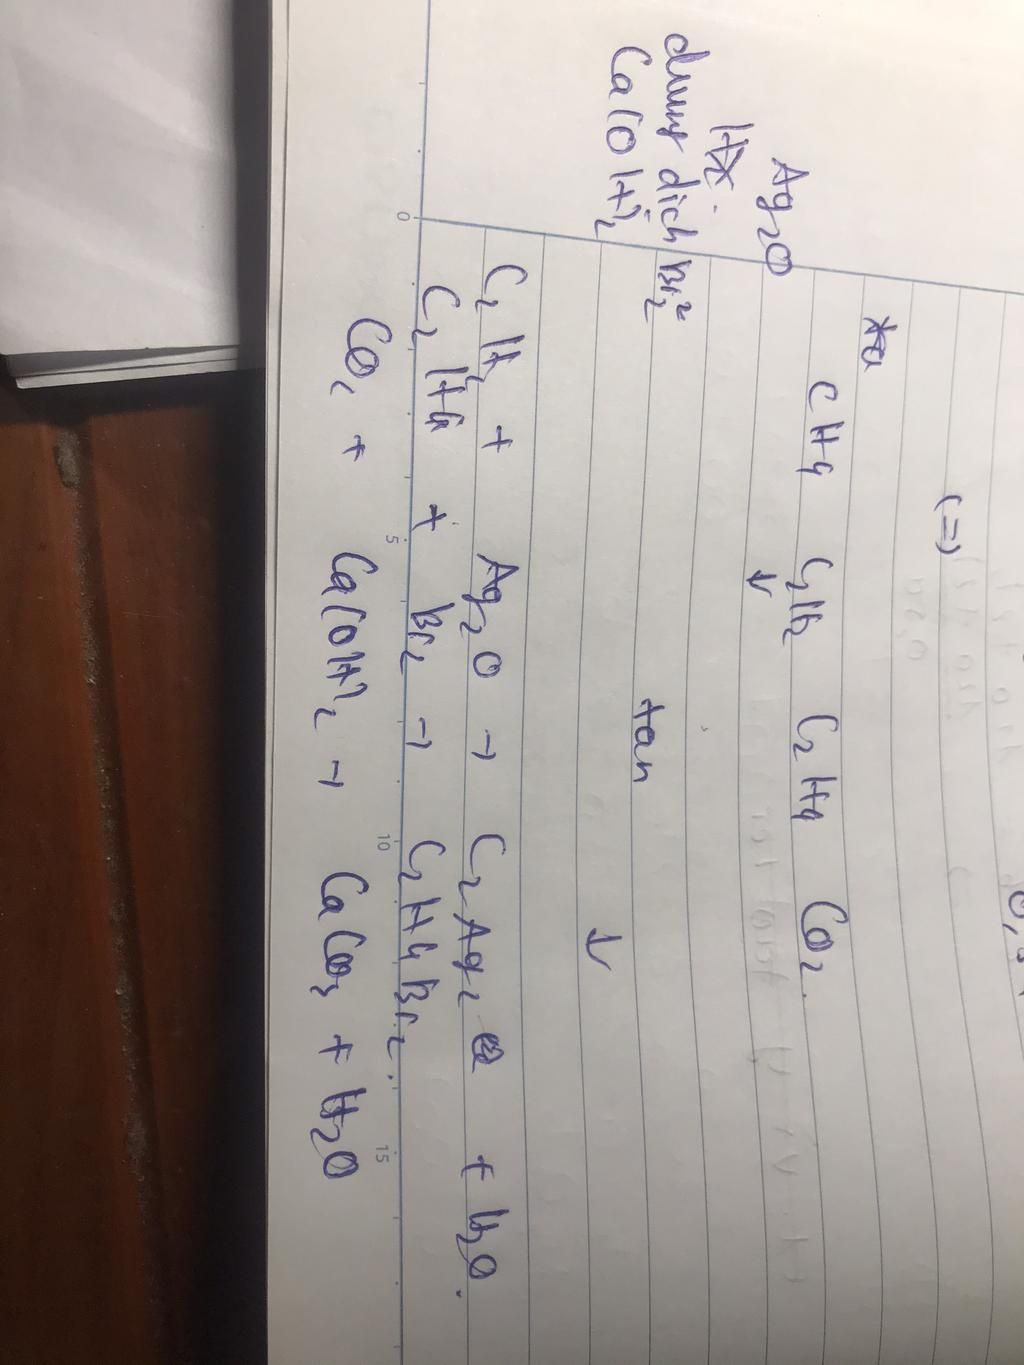 (=)
CH4 C2H2 C2H4 CO2
Ag2O ↓
dung dich Br2 tan
Ca(OH)2 ↓
C2H2 + Ag2O → C2Ag2 + H2O.
C2H4 + Br2 → C2H4Br2.
CO2 + Ca(OH)2 → CaCO3 + H2O
0 5 10 15